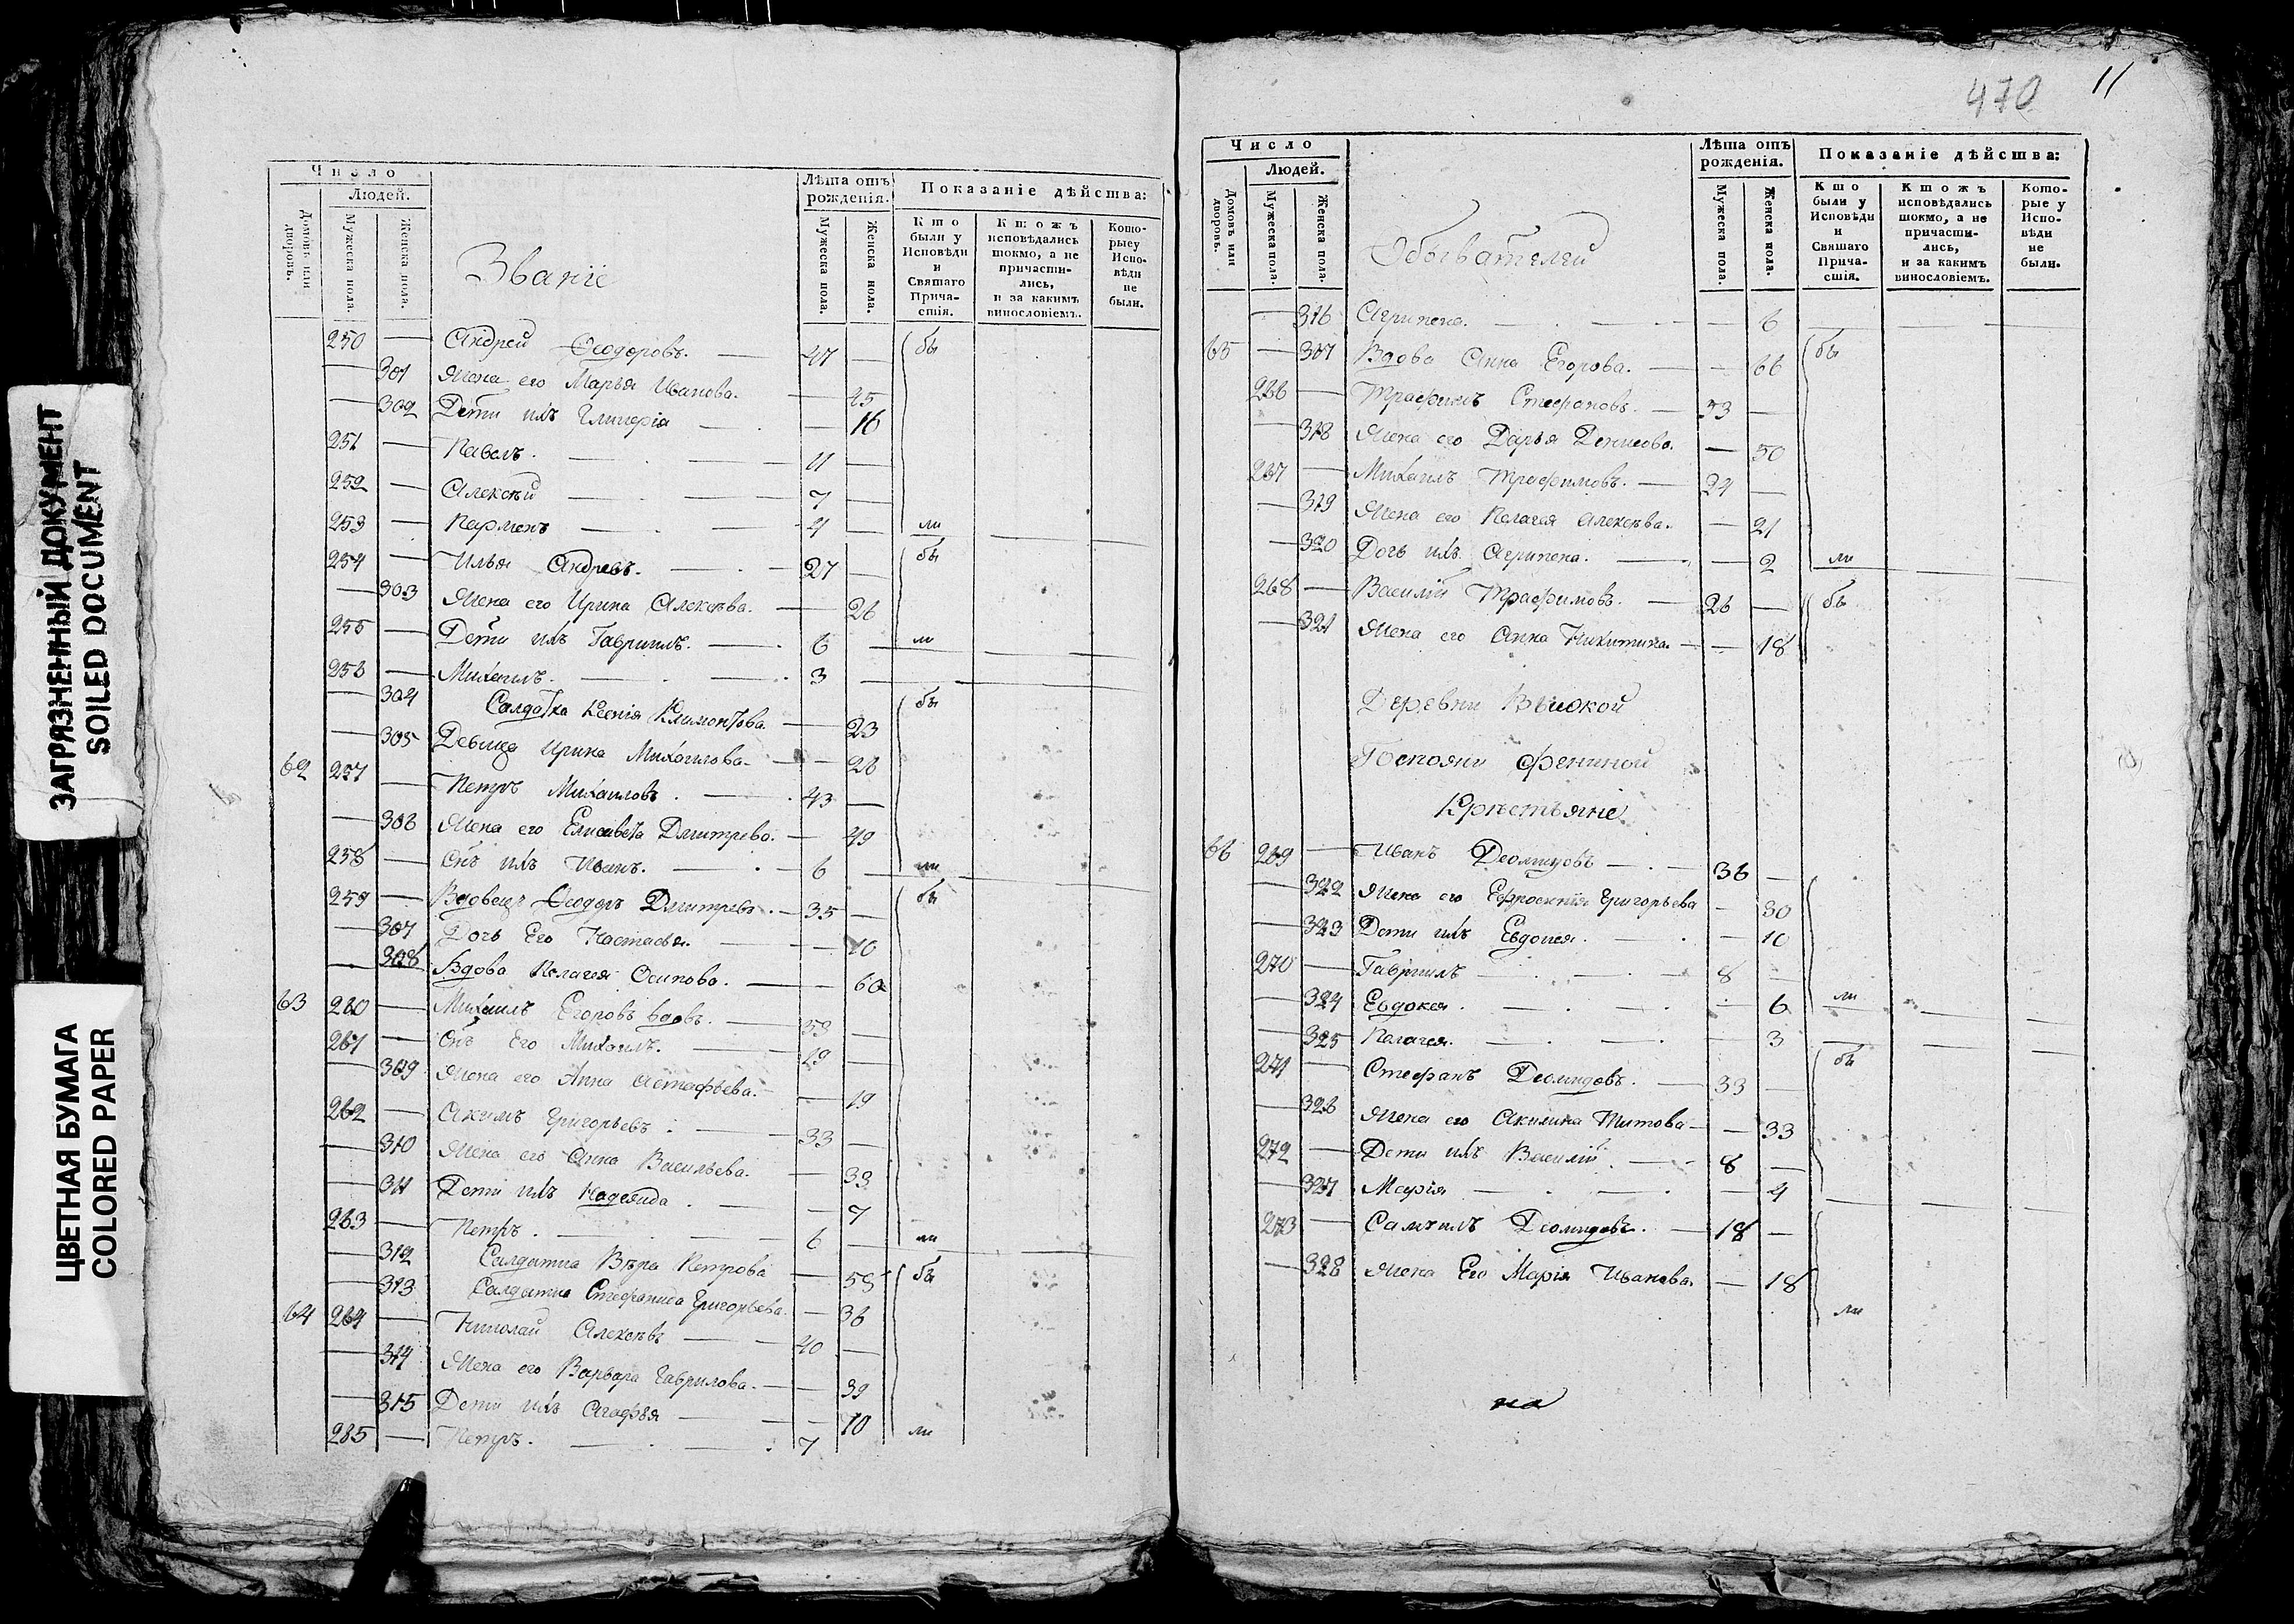 ЗАГРЯЗНЕННЫЙ ДОКУМЕНТ
SOILED DOCUMENT
ЦВЕТНАЯ БУМАГА
COLORED PAPER
Число
Людей.
Лѣта отъ рожденія.
Показаніе дѣйства:
Домовъ или дворовъ.
Мужеска пола.
Женска пола.
Званіе
Мужеска пола.
Женска пола.
Кто были у Исповѣди и Святаго Причастія.
Ктожъ исповѣдались токмо, а не причастились, и за какимъ винословіемъ.
Которые у Исповѣди не были.
250 — Андрей Ѳеодоровъ. — 47 — бы
— 301 Жена его Марья Иванова. — 45
— 302 Дети ихъ Гликерія — 16
251 — Павелъ. — 11 —
252 — Алексѣй — 7 —
253 — Парменъ — 4 — ли
254 — Илья Андревъ. — 27 — бы
— 303 Жена его Ирина Алексѣва. — 26
255 — Дети ихъ Гавриилъ. — 6 — ли
256 — Михаилъ. — 3 —
— 304 Салдатка Ксенія Климонтова — 23 бы
— 305 Девица Ирина Михаилова — 26
62 257 — Петръ Михаиловъ. — 43 —
— 306 Жена его Елисавета Дмитрева. — 49
258 — Снъ ихъ Иванъ. — 6 — ли
259 — Вдовецъ Ѳеодоръ Дмитревъ. — 35 — бы
— 307 Дочь Его Настасья. — 10
— 308 Вдова Пелагея Осипова. — 60
63 260 — Михаилъ Егоровъ вдовъ. — 53 —
261 — Снъ Его Михаилъ. — 19 —
— 309 Жена его Анна Астафьева. — 19
262 — Акимъ Григорьевъ. — 33 —
— 310 Жена его Анна Васильева. — 33
— 311 Дети ихъ Надежда. — 7
263 — Петръ. — 6 — ли
— 312 Салдатка Вѣра Петрова — 55 бы
— 313 Салдатка Стефанида Григорьева. — 36
64 264 — Николай Алексѣвъ — 40 —
— 314 Жена его Варвара Гаврилова. — 39
— 315 Дети ихъ Агафья — 10
265 — Петръ. — 7 ли
470 11
Число
Людей.
Лѣта отъ рожденія.
Показаніе дѣйства:
Домовъ или дворовъ.
Мужеска пола.
Женска пола.
Обывателей
Мужеска пола.
Женска пола.
Кто были у Исповѣди и Святаго Причастія.
Ктожъ исповѣдались токмо, а не причастились, и за какимъ винословіемъ.
Которые у Исповѣди не были.
— 316 Агрипена. — 6
65 — 317 Вдова Анна Егорова. — 66 бы
266 — Трафимъ Стефановъ. — 53 —
— 318 Жена его Дарья Денисова. — 50
267 — Михаилъ Трафимовъ. — 24 —
— 319 Жена его Пелагея Алексѣва. — 21
— 320 Дочь ихъ Агрипена. — 2 ли
268 — Василій Трафимовъ. — 26 — бы
— 321 Жена его Анна Никитина — 18
Деревни Высокой
Госпожи Фениной
Крестьяне
66 269 — Иванъ Деомидовъ — 36 —
— 322 Жена его Ефросинія Григорьева — 30
— 323 Дети ихъ Евдокея. — 10
270 — Гавриилъ — 8 —
— 324 Евдокея. — 6 ли
— 325 Пелагея. — 3
271 — Стефанъ Деомидовъ. — 33 — бы
— 326 Жена его Акилина Титова — 33
272 — Дети ихъ Василій. — 8 —
— 327 Марія — 4
273 — Самуилъ Деомидовъ. — 18 —
— 328 Жена Его Марія Иванова. — 18
ли
на